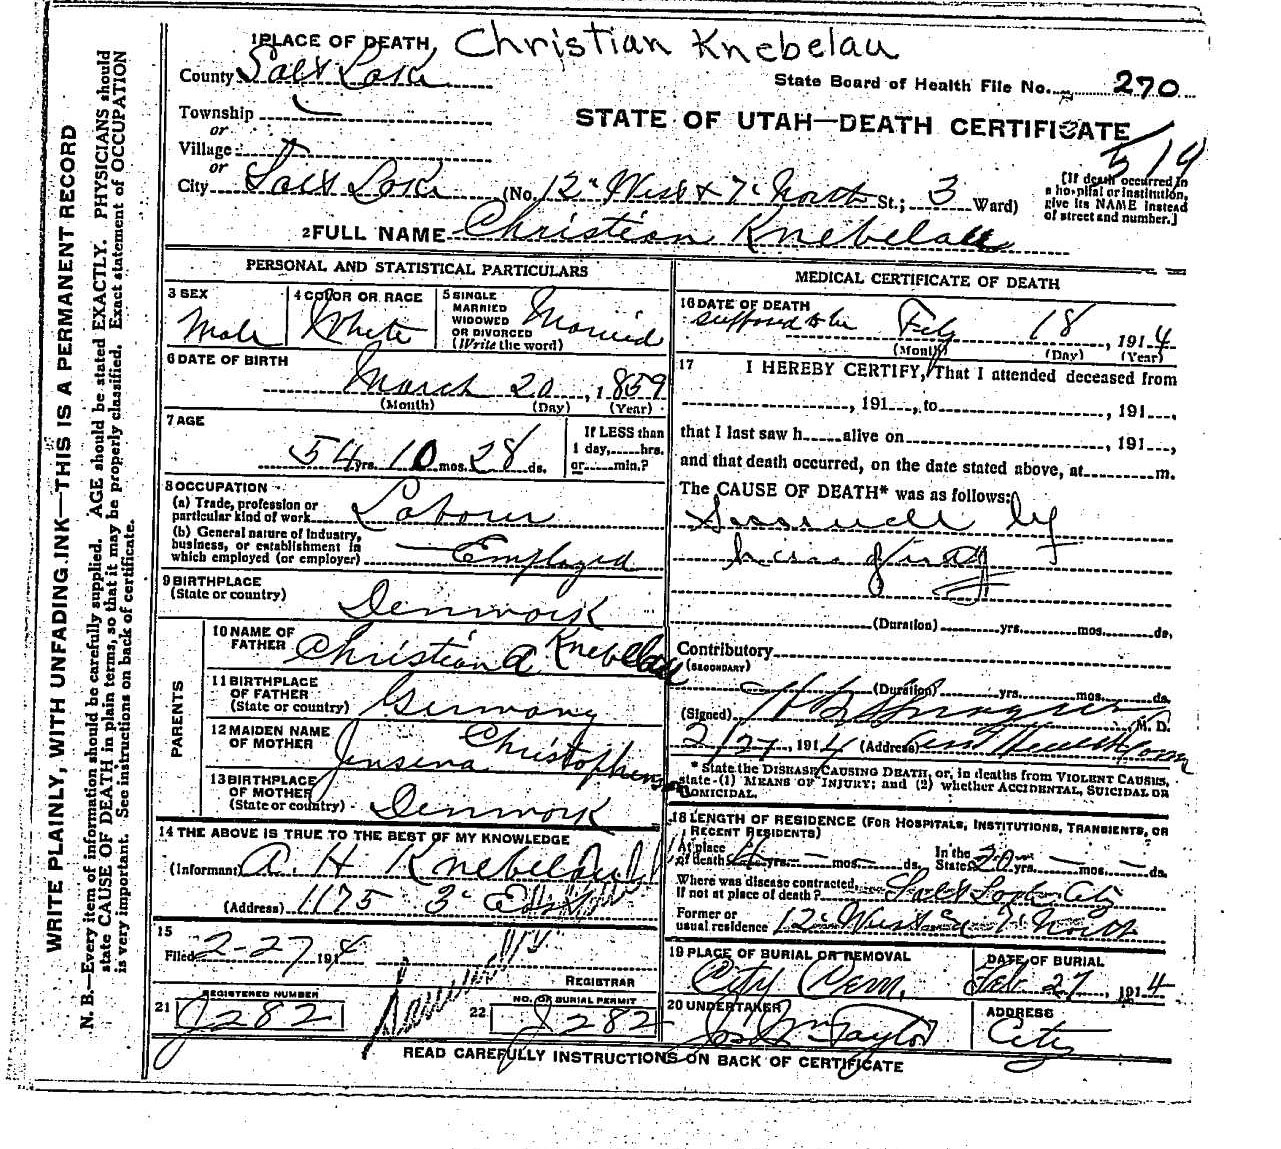 1 PLACE OF DEATH, Christian Knebelau
County Salt Lake
State Board of Health File No. 270
Township
or
STATE OF UTAH—DEATH CERTIFICATE
Village
or
519
City Salt Lake (No. 12" West & 7" North St.; 3 Ward)
[If death occurred in
a hospital or institution,
give its NAME instead
of street and number.]
2 FULL NAME Christian Knebelau
PERSONAL AND STATISTICAL PARTICULARS
3 SEX
Male
4 COLOR OR RACE
White
5 SINGLE
MARRIED
WIDOWED
OR DIVORCED
(Write the word)
Married
6 DATE OF BIRTH
March 20, 1859
(Month) (Day) (Year)
7 AGE
54 yrs. 10 mos. 28 ds.
If LESS than
1 day,......hrs.
or......min.?
8 OCCUPATION
(a) Trade, profession or
particular kind of work Labour
(b) General nature of industry,
business, or establishment in
which employed (or employer) Employed
9 BIRTHPLACE
(State or country)
Denmark
PARENTS
10 NAME OF
FATHER Christian A Knebelau
11 BIRTHPLACE
OF FATHER
(State or country) Germany
12 MAIDEN NAME
OF MOTHER Jensena Christophensen
13 BIRTHPLACE
OF MOTHER
(State or country) Denmark
14 THE ABOVE IS TRUE TO THE BEST OF MY KNOWLEDGE
(Informant) A. H Knebelau
(Address) 1175 3" East
15
Filed 2-27 1914
REGISTRAR
21 REGISTERED NUMBER
J282
22 NO. OF BURIAL PERMIT
J282
MEDICAL CERTIFICATE OF DEATH
16 DATE OF DEATH
supposed to be Feby 18, 1914
(Month) (Day) (Year)
17 I HEREBY CERTIFY, That I attended deceased from
, 191...., to , 191....,
that I last saw h.....alive on , 191....,
and that death occurred, on the date stated above, at m.
The CAUSE OF DEATH* was as follows:
by
(Duration) yrs. mos. ds.
Contributory
(SECONDARY)
(Duration) yrs. mos. ds.
(Signed) M. D.
2/27, 1914 (Address)
* State the DISEASE CAUSING DEATH, or, in deaths from VIOLENT CAUSES,
state (1) MEANS OF INJURY; and (2) whether ACCIDENTAL, SUICIDAL OR
HOMICIDAL.
18 LENGTH OF RESIDENCE (FOR HOSPITALS, INSTITUTIONS, TRANSIENTS, OR
RECENT RESIDENTS)
At place
of death yrs. — mos. — ds. In the
State 20 yrs. — mos. — ds.
Where was disease contracted,
if not at place of death? Salt Lake City
Former or
usual residence 12" West & 7" North
19 PLACE OF BURIAL OR REMOVAL
City Cem.
DATE OF BURIAL
Feb 27, 1914
20 UNDERTAKER
Jos Wm Taylor
ADDRESS
City
READ CAREFULLY INSTRUCTIONS ON BACK OF CERTIFICATE
WRITE PLAINLY, WITH UNFADING INK—THIS IS A PERMANENT RECORD
N. B.—Every item of information should be carefully supplied. AGE should be stated EXACTLY. PHYSICIANS should
state CAUSE OF DEATH in plain terms, so that it may be properly classified. Exact statement of OCCUPATION
is very important. See instructions on back of certificate.